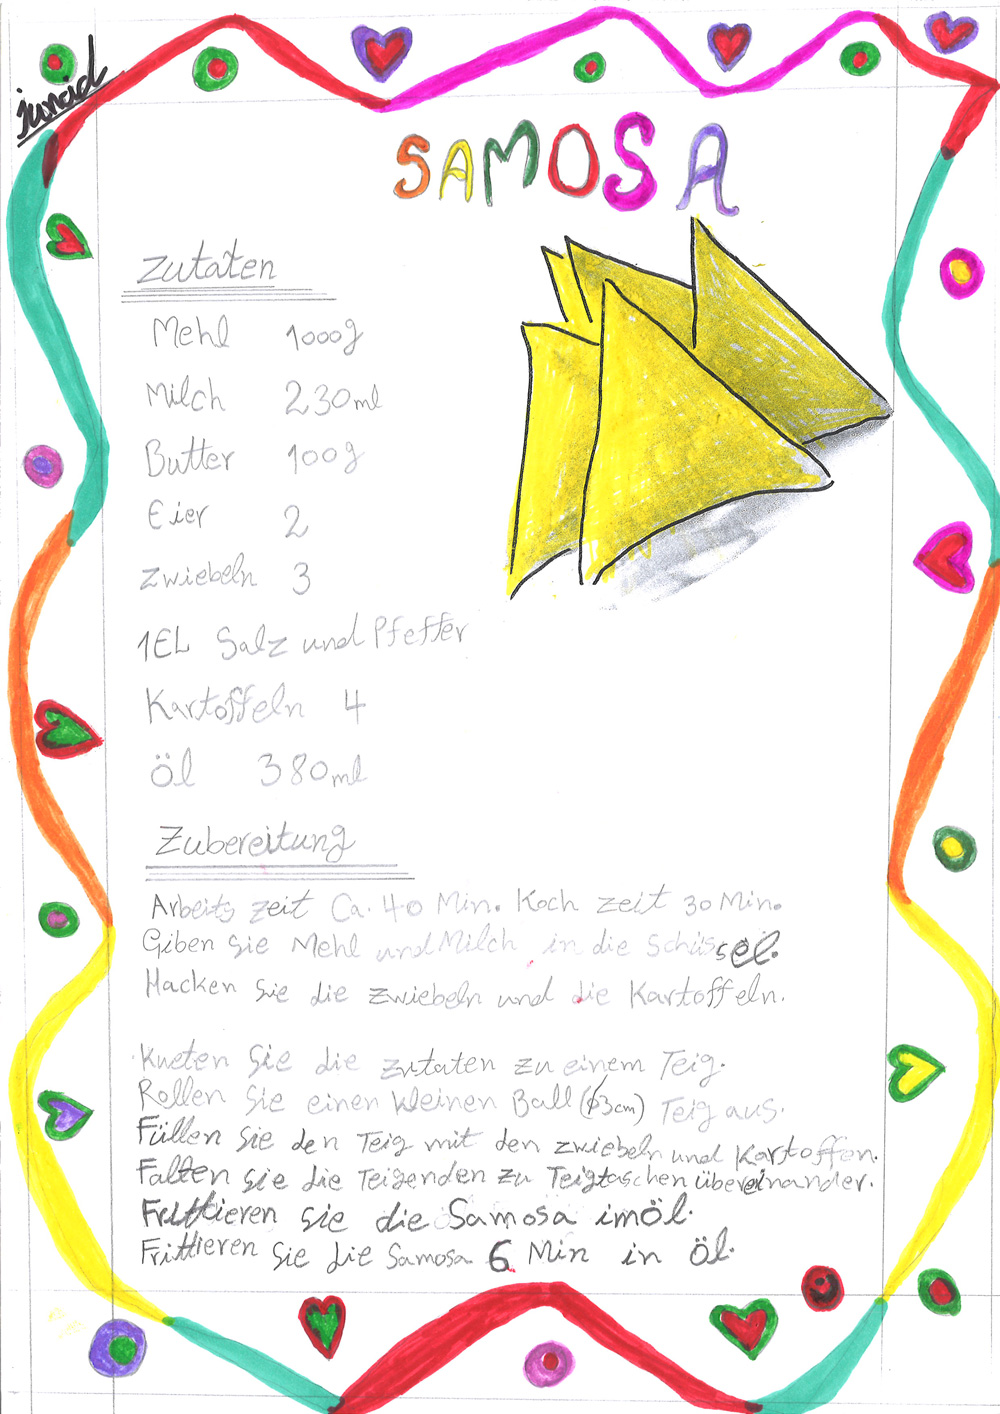 junaid
SAMOSA
Zutaten
Mehl 1000g
Milch 230ml
Butter 100g
Eier 2
Zwiebeln 3
1EL Salz und Pfeffer
Kartoffeln 4
Öl 380ml
Zubereitung
Arbeits zeit Ca. 40 Min. Koch zeit 30 Min.
Giben Sie Mehl und Milch in die Schüssel.
Hacken Sie die Zwiebeln und die Kartoffeln.
Kneten Sie die Zutaten zu einem Teig.
Rollen Sie einen kleinen Ball (ø3cm) Teig aus.
Füllen Sie den Teig mit den Zwiebeln und Kartoffen.
Falten Sie die Teigenden zu Teigtaschen übereinander.
Frittieren sie die Samosa im öl.
Frittieren Sie die Samosa 6 Min in öl.